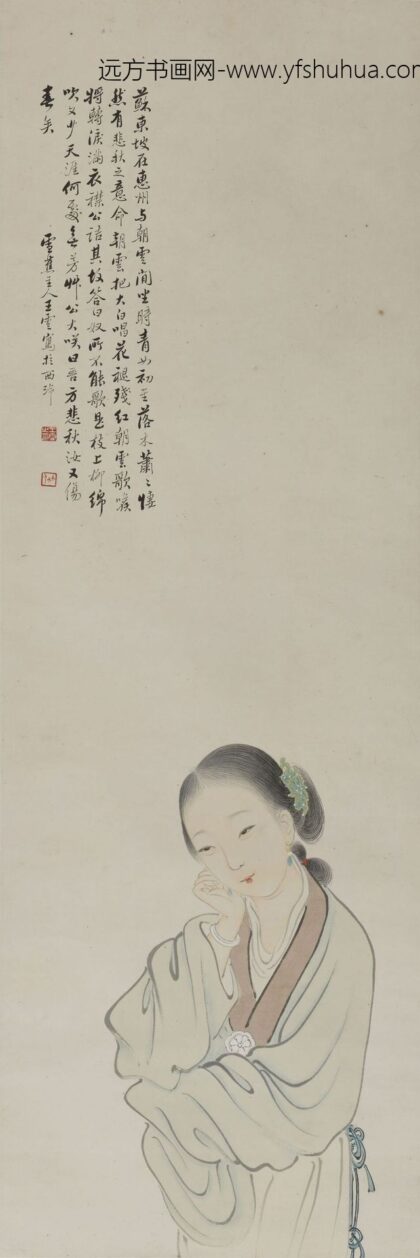 远方书画网-www.yfshuhua.com
蘇東坡在惠州与朝雲閒坐時青女初至落木蕭〻悽
然有悲秋之意命朝雲把大白唱花褪殘紅朝雲歌喉
將轉淚滿衣襟公詰其故答曰奴所不能歌是枝上柳綿
吹又少天涯何處無芳艸公大咲曰吾方悲秋汝又傷
春矣
蕉主人王雲寫於西